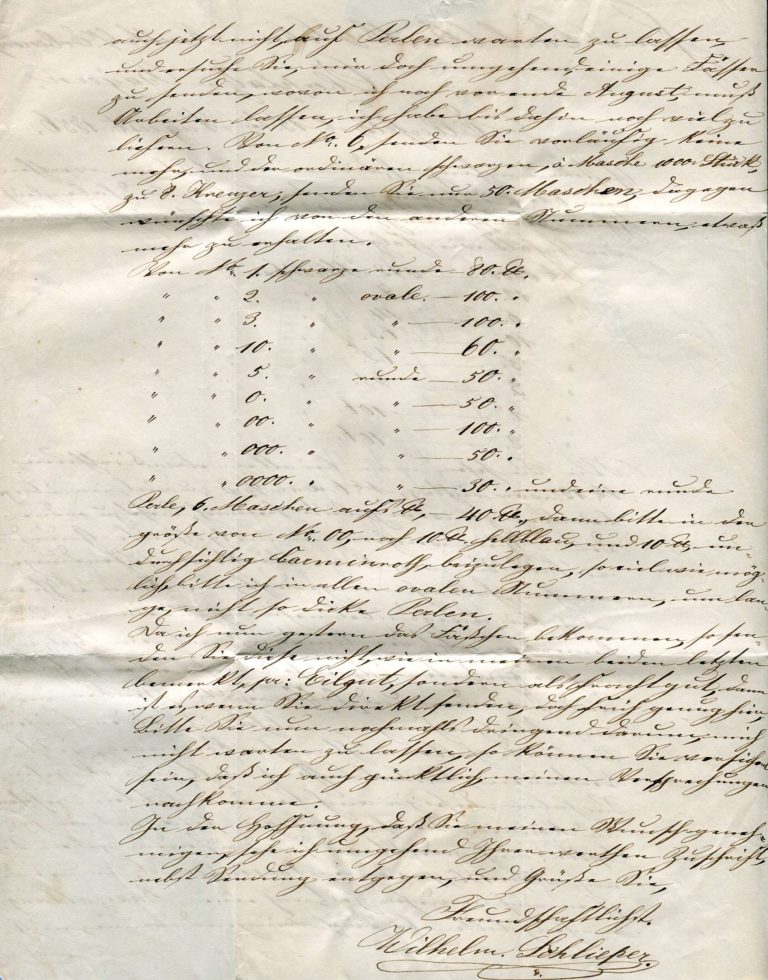 auch jetzt nicht, auf Perlen warten zu lassen,
und ersuche Sie, mir doch umgehend, einige Fässer
zu senden, wovon ich noch vor ende August, muß
Arbeiten lassen, ich habe bis dahin noch viel zu
liefern. Von No. 6, senden Sie vorläufig keine
mehr, und der ordinären schwarzen, à Masche 1000. Stück,
zu 8. Kreuzer, senden Sie nur 50. Maschen, dagegen
wünschte ich von den anderen Nummern, etwaß
mehr zu erhalten.
Von No. 1. schwarze runde - 80. ℔.
" " 2. " ovale. - 100. "
" " 3. " " - 100. "
" " 10. " " - 60. "
" " 5. " runde - 50. "
" " 0. " " - 50. "
" " 00. " " - 100. "
" " 000. " " - 50. "
" " 0000. " " - 30. " und eine runde
Perle, 6. Maschen aufs ℔, - 40. ℔., dann bitte in der
größe von No. 00, noch 10. ℔. hellblau, und 10. ℔. un-
durchsichtig Carminroth, beizulegen, so viel wie mög-
lich, bitte ich in allen ovalen Nummern, um lan-
ge, nicht so dicke Perlen.
Da ich nun gestern das Fäßchen bekommen, so sen-
den Sie diese nicht, wie in meinen beiden letzten
bemerkt, pr: Eilgut, sondern als Frachtgut, dann
ist es, wenn Sie direkt senden, doch früh genug hier,
Bitte Sie nun nochmahls dringend darum, mich
nicht warten zu lassen, so können Sie versichert
sein, daß ich auch pünktlich meinen Versprechungen
nachkomme.
In der Hoffnung, daß Sie meinen Wunsch geneh-
migen, sehe ich umgehend Ihrer werthen Zuschrift,
nebst Sendung entgegen, und Grüße Sie,
Freundschaftlichst.
Wilhelm. Schlieper.